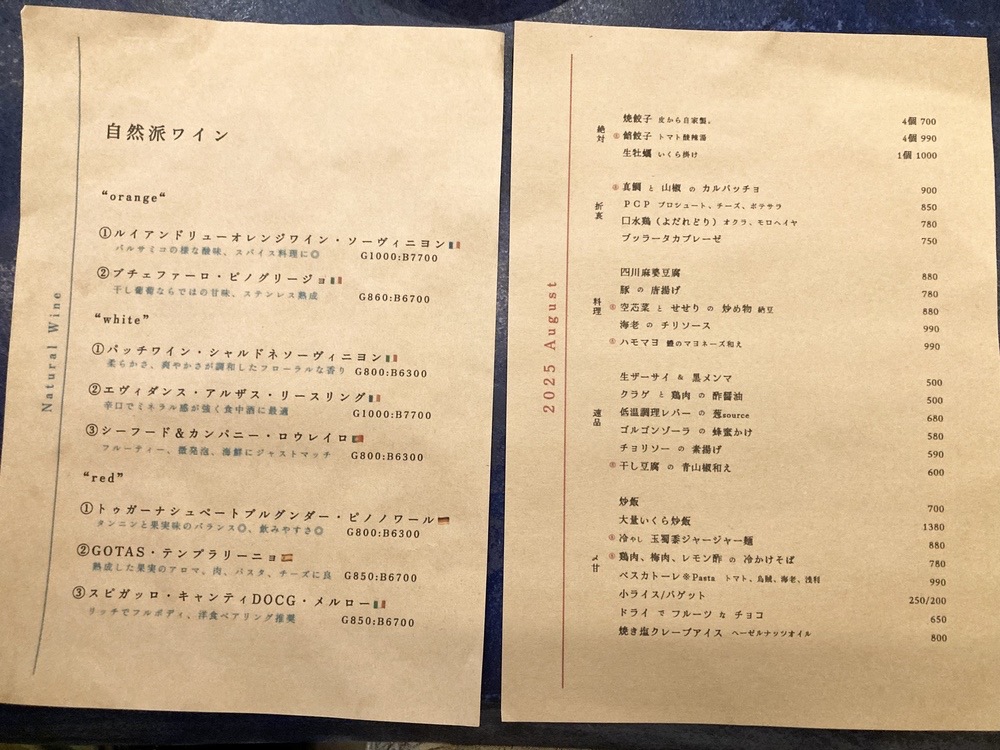 自然派ワイン
Natural Wine
“orange“
①ルイアンドリューオレンジワイン・ソーヴィニヨン
バルサミコの様な酸味、スパイス料理に◎
G1000:B7700
②ブチェファーロ・ピノグリージョ
干し葡萄ならではの甘味、ステンレス熟成
G860:B6700
“white”
①パッチワイン・シャルドネソーヴィニヨン
柔らかさ、爽やかさが調和したフローラルな香り
G800:B6300
②エヴィダンス・アルザス・リースリング
辛口でミネラル感が強く食中酒に最適
G1000:B7700
③シーフード&カンパニー・ロウレイロ
フルーティー、微発泡、海鮮にジャストマッチ
G800:B6300
“red”
①トゥガーナシュペートブルグンダー・ピノノワール
タンニンと果実味のバランス◎、飲みやすさ◎
G800:B6300
②GOTAS・テンプラリーニョ
熟成した果実のアロマ、肉、パスタ、チーズに良
G850:B6700
③スピガッロ・キャンティDOCG・メルロー
リッチでフルボディ、洋食ペアリング推奨
G850:B6700
2025 August
絶対
焼餃子 皮から自家製。 4個 700
餡餃子 トマト酸辣湯 4個 990
生牡蠣 いくら掛け 1個 1000
前菜
真鯛 と 山椒 の カルパッチョ 900
PCP プロシュート、チーズ、ポテサラ 850
口水鶏(よだれどり) オクラ、モロヘイヤ 780
ブッラータカプレーゼ 750
料理
四川麻婆豆腐 880
豚 の 唐揚げ 780
空芯菜 と せせり の 炒め物 納豆 880
海老 の チリソース 990
ハモマヨ 鱧のマヨネーズ和え 990
速品
生ザーサイ & 黒メンマ 500
クラゲ と 鶏肉 の 酢醤油 500
低温調理レバー の 葱source 680
ゴルゴンゾーラ の 蜂蜜かけ 580
チョリソー の 素揚げ 590
干し豆腐 の 青山椒和え 600
〆甘
炒飯 700
大量いくら炒飯 1380
冷やし 玉蜀黍ジャージャー麺 880
鶏肉、梅肉、レモン酢 の 冷かけそば 780
ペスカトーレ※Pasta トマト、烏賊、海老、浅利 990
小ライス/バゲット 250/200
ドライ で フルーツ な チョコ 650
焼き塩クレープアイス ヘーゼルナッツオイル 800